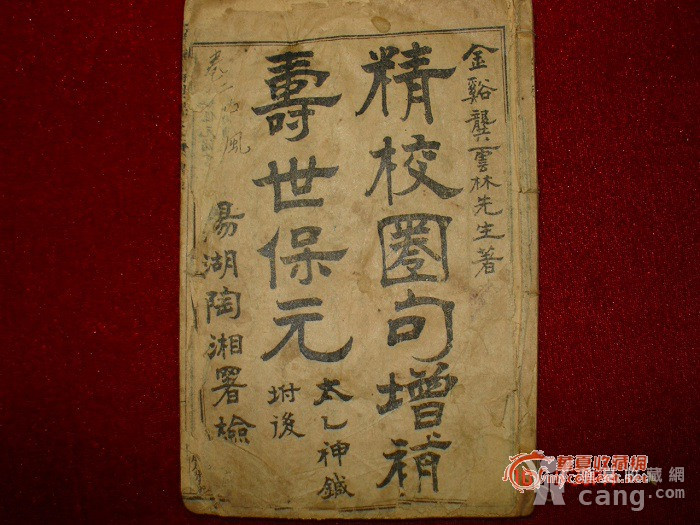 金谿龔雲林先生著
精校圈句增補
壽世保元
太乙神鍼
坿後
陽湖陶湘署檢
卷二中風
華夏收藏網
mycollect.net
收藏网
cang.com